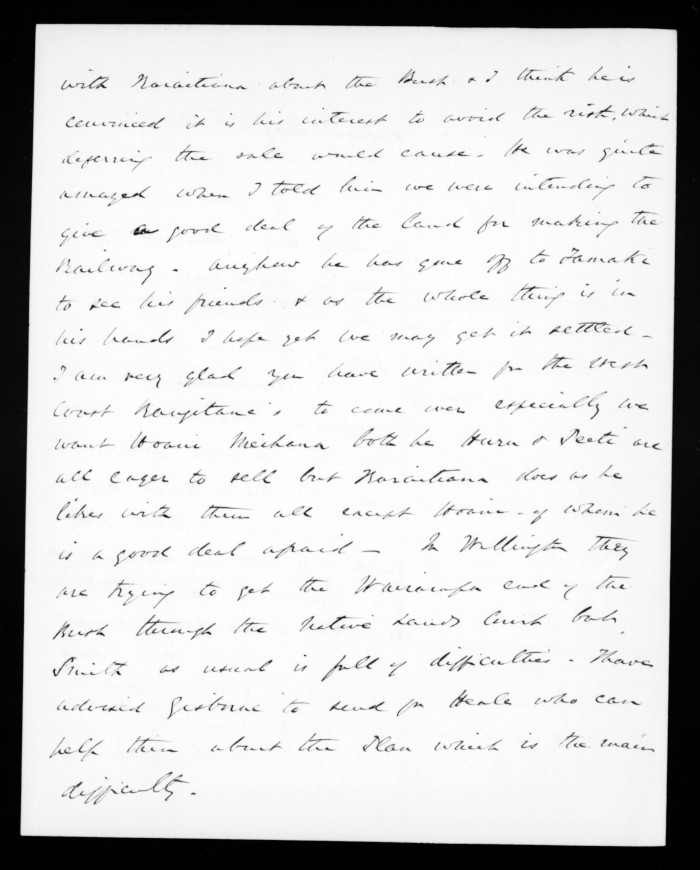 with Karaitiana about the Bush & I think he is
convinced it is his interest to avoid the risk, which
deferring the sale would cause. He was quite
amazed when I told him we were intending to
give a good deal of the land for making the
Railway. Anyhow he has gone off to Tamaki
to see his friends & as the whole thing is in
his hands I hope yet we may get it settled -
I am very glad you have written for the West
Coast Rangitane's to come over especially we
want Hoani Meihana both he Huru & Peeti are
all eager to sell but Karaitiana does as he
likes with them all except Hoani - of whom he
is a good deal afraid - In Wellington they
are trying to get the Wairarapa end of the
Bush through the Native Lands Court but
Smith as usual is full of difficulties - I have
advised Gisborne to send for Heale who can
help them about the Plan which is the main
difficulty.